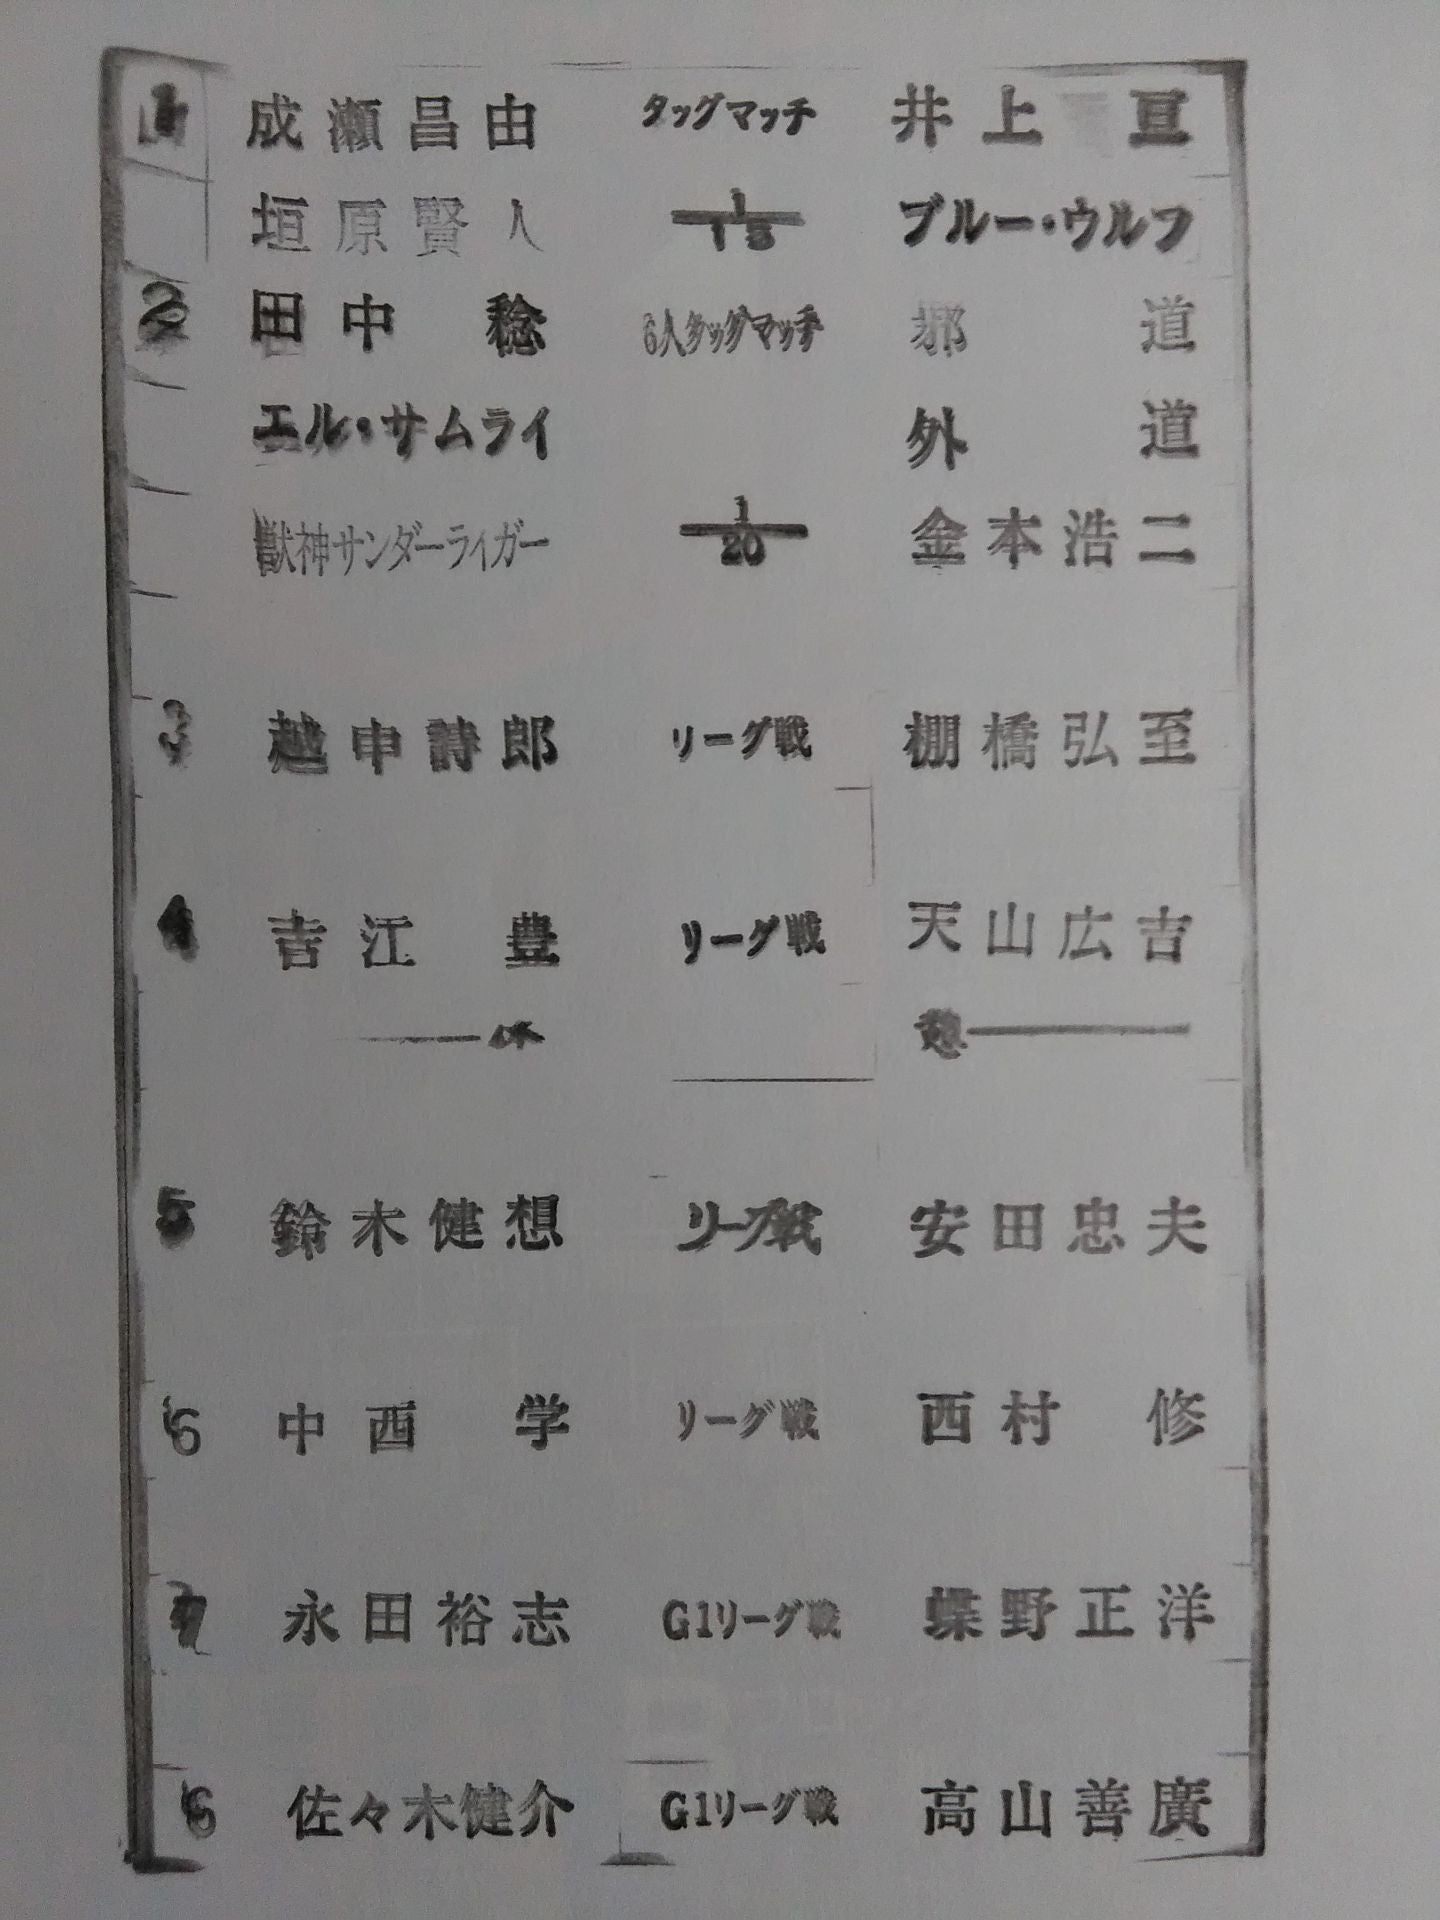 1 成瀬昌由 タッグマッチ 井上亘
垣原賢人 1/15 ブルー・ウルフ
2 田中稔 6人タッグマッチ 邪道
エル・サムライ 外道
獣神サンダーライガー 1/20 金本浩二
3 越中詩郎 リーグ戦 棚橋弘至
4 吉江豊 リーグ戦 天山広吉
——休 憩——
5 鈴木健想 リーグ戦 安田忠夫
6 中西学 リーグ戦 西村修
7 永田裕志 G1リーグ戦 蝶野正洋
佐々木健介 G1リーグ戦 高山善廣